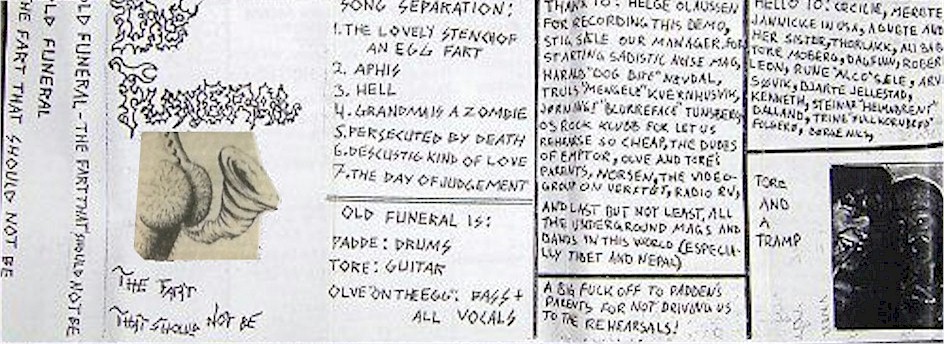 THE FART THAT SHOULD NOT BE
OLD FUNERAL
OLD FUNERAL - THE FART THAT SHOULD NOT BE
THE FART
THAT SHOULD NOT BE
SONG SEPARATION:
1. THE LOVELY STENCH OF
AN EGG FART
2. APHIS
3. HELL
4. GRANDMA IS A ZOMBIE
5. PERSECUTED BY DEATH
6. DESCUSTIG KIND OF LOVE
7. THE DAY OF JUDGEMENT
OLD FUNERAL IS:
PADDE: DRUMS
TORE: GUITAR
OLVE "ON THE EGG": BASS +
ALL VOCALS
THANX TO: HELGE OLAUSSEN
FOR RECORDING THIS DEMO,
STIG SÆLE OUR MANAGER, FOR
STARTING SADISTIC NOISE MAG,
HARALD "DOG BITE" NØVDAL,
TRULS "MENGELE" KVERNHUSVIK,
JØRN INGE "BLURREFACE" TUNSBERG,
OS ROCK KLUBB FOR LET US
REHEARSE SO CHEAP, THE DUDES
OF EMPTOR, OLVE AND TORE'S
PARENTS, MORSEN, THE VIDEO-
GROUP ON VERFTØT, RADIO RV,
AND LAST BUT NOT LEAST, ALL
THE UNDERGROUND MAGS AND
BANDS IN THIS WORLD (ESPECIA-
LLY TIBET AND NEPAL)
A BIG FUCK OFF TO PADDEN'S
PARENTS FOR NOT DRIVING US
TO THE REHEARSALS!
HELLO TO: CECILIE, MERETE
JANNICKE IN USA, AGUETE AND
HER SISTER, THORLAKK, ALI BABA
TORE MOBERG, DAGFUNN, ROBER
LEON, RUNE "ALCO" SÆLE, ARV
SØVIK, BJARTE JELLESTAD,
KENNETH, STEINAR "HELMBRENT"
DALLAND, TRINE
FOLGERØ, BØRGE NILS
TORE
AND
A
TRAMP